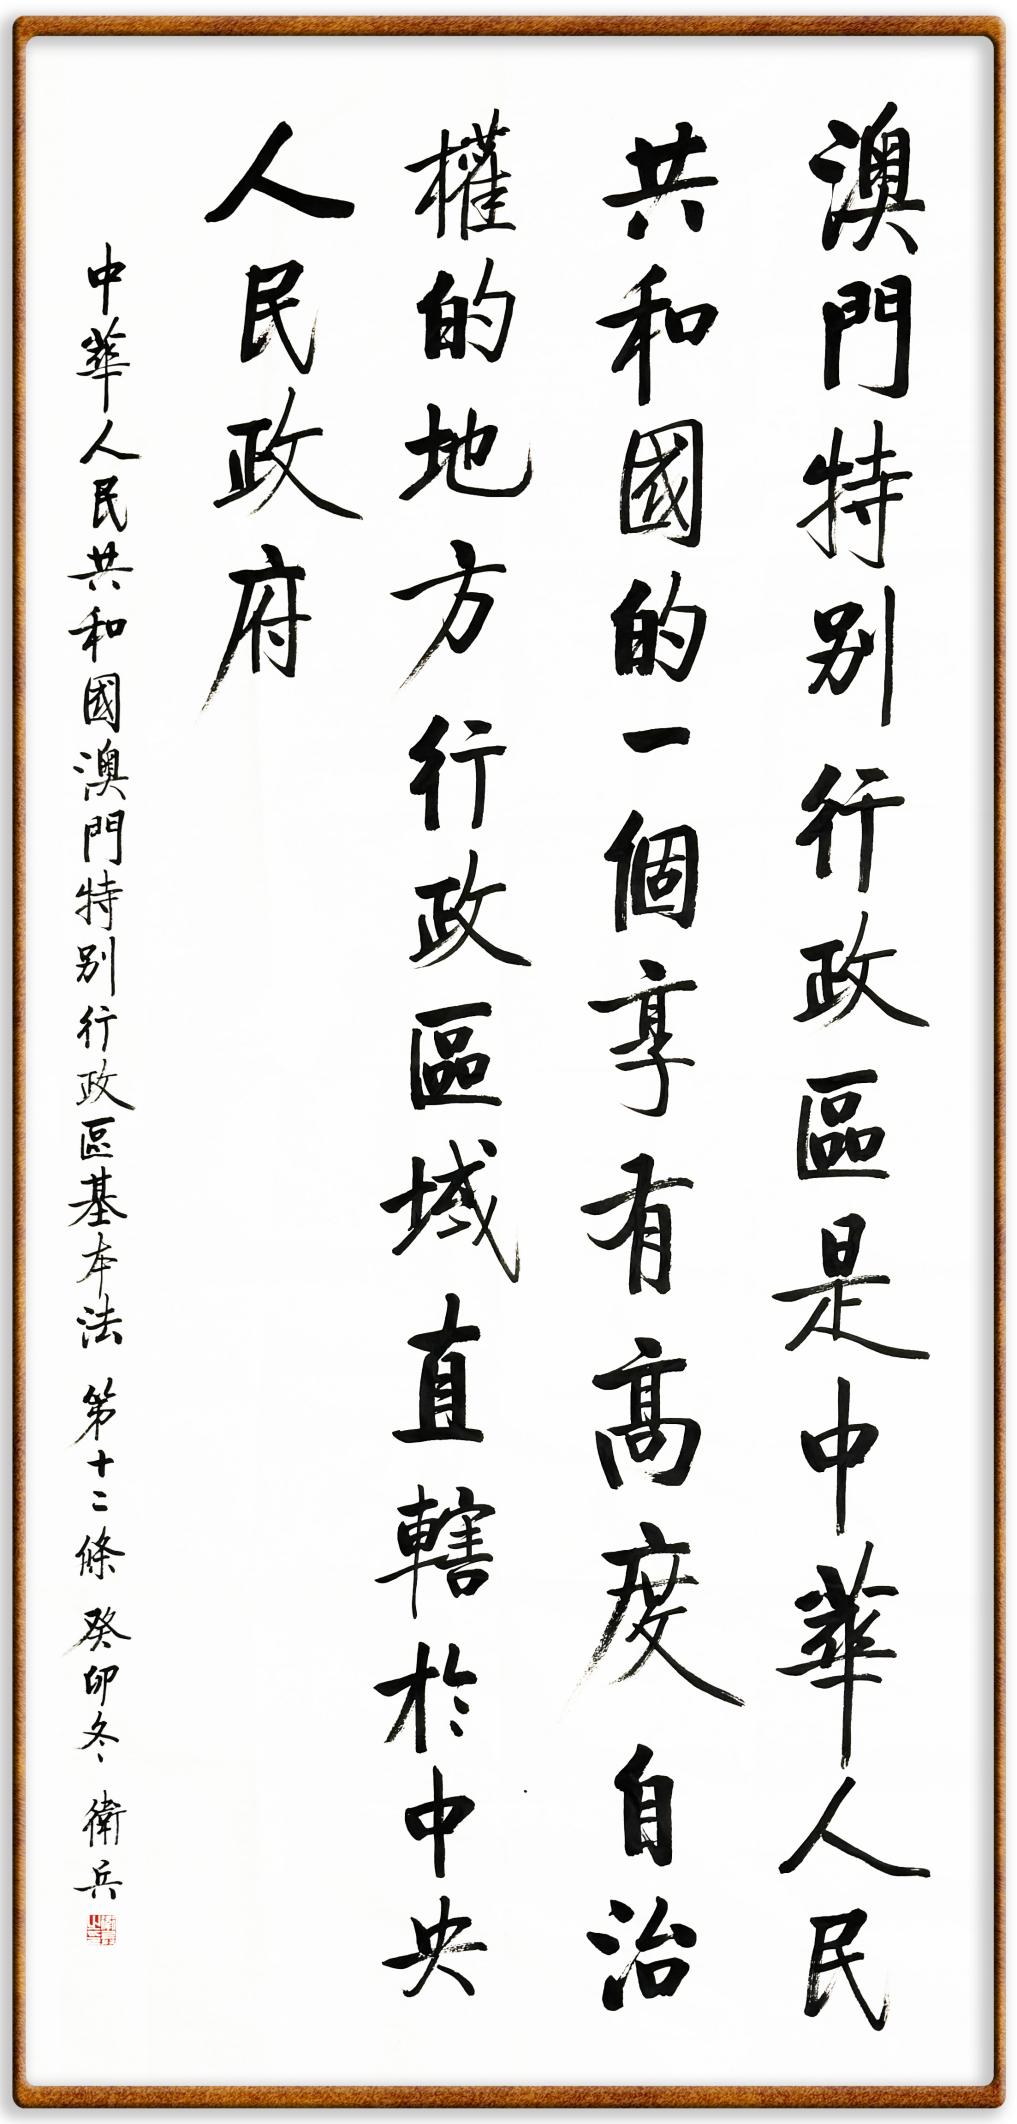 澳門特别行政區是中華人民
共和國的一個享有高度自治
權的地方行政區域直轄於中央
人民政府
中華人民共和國澳門特别行政區基本法 第十二條 癸卯冬 衛兵